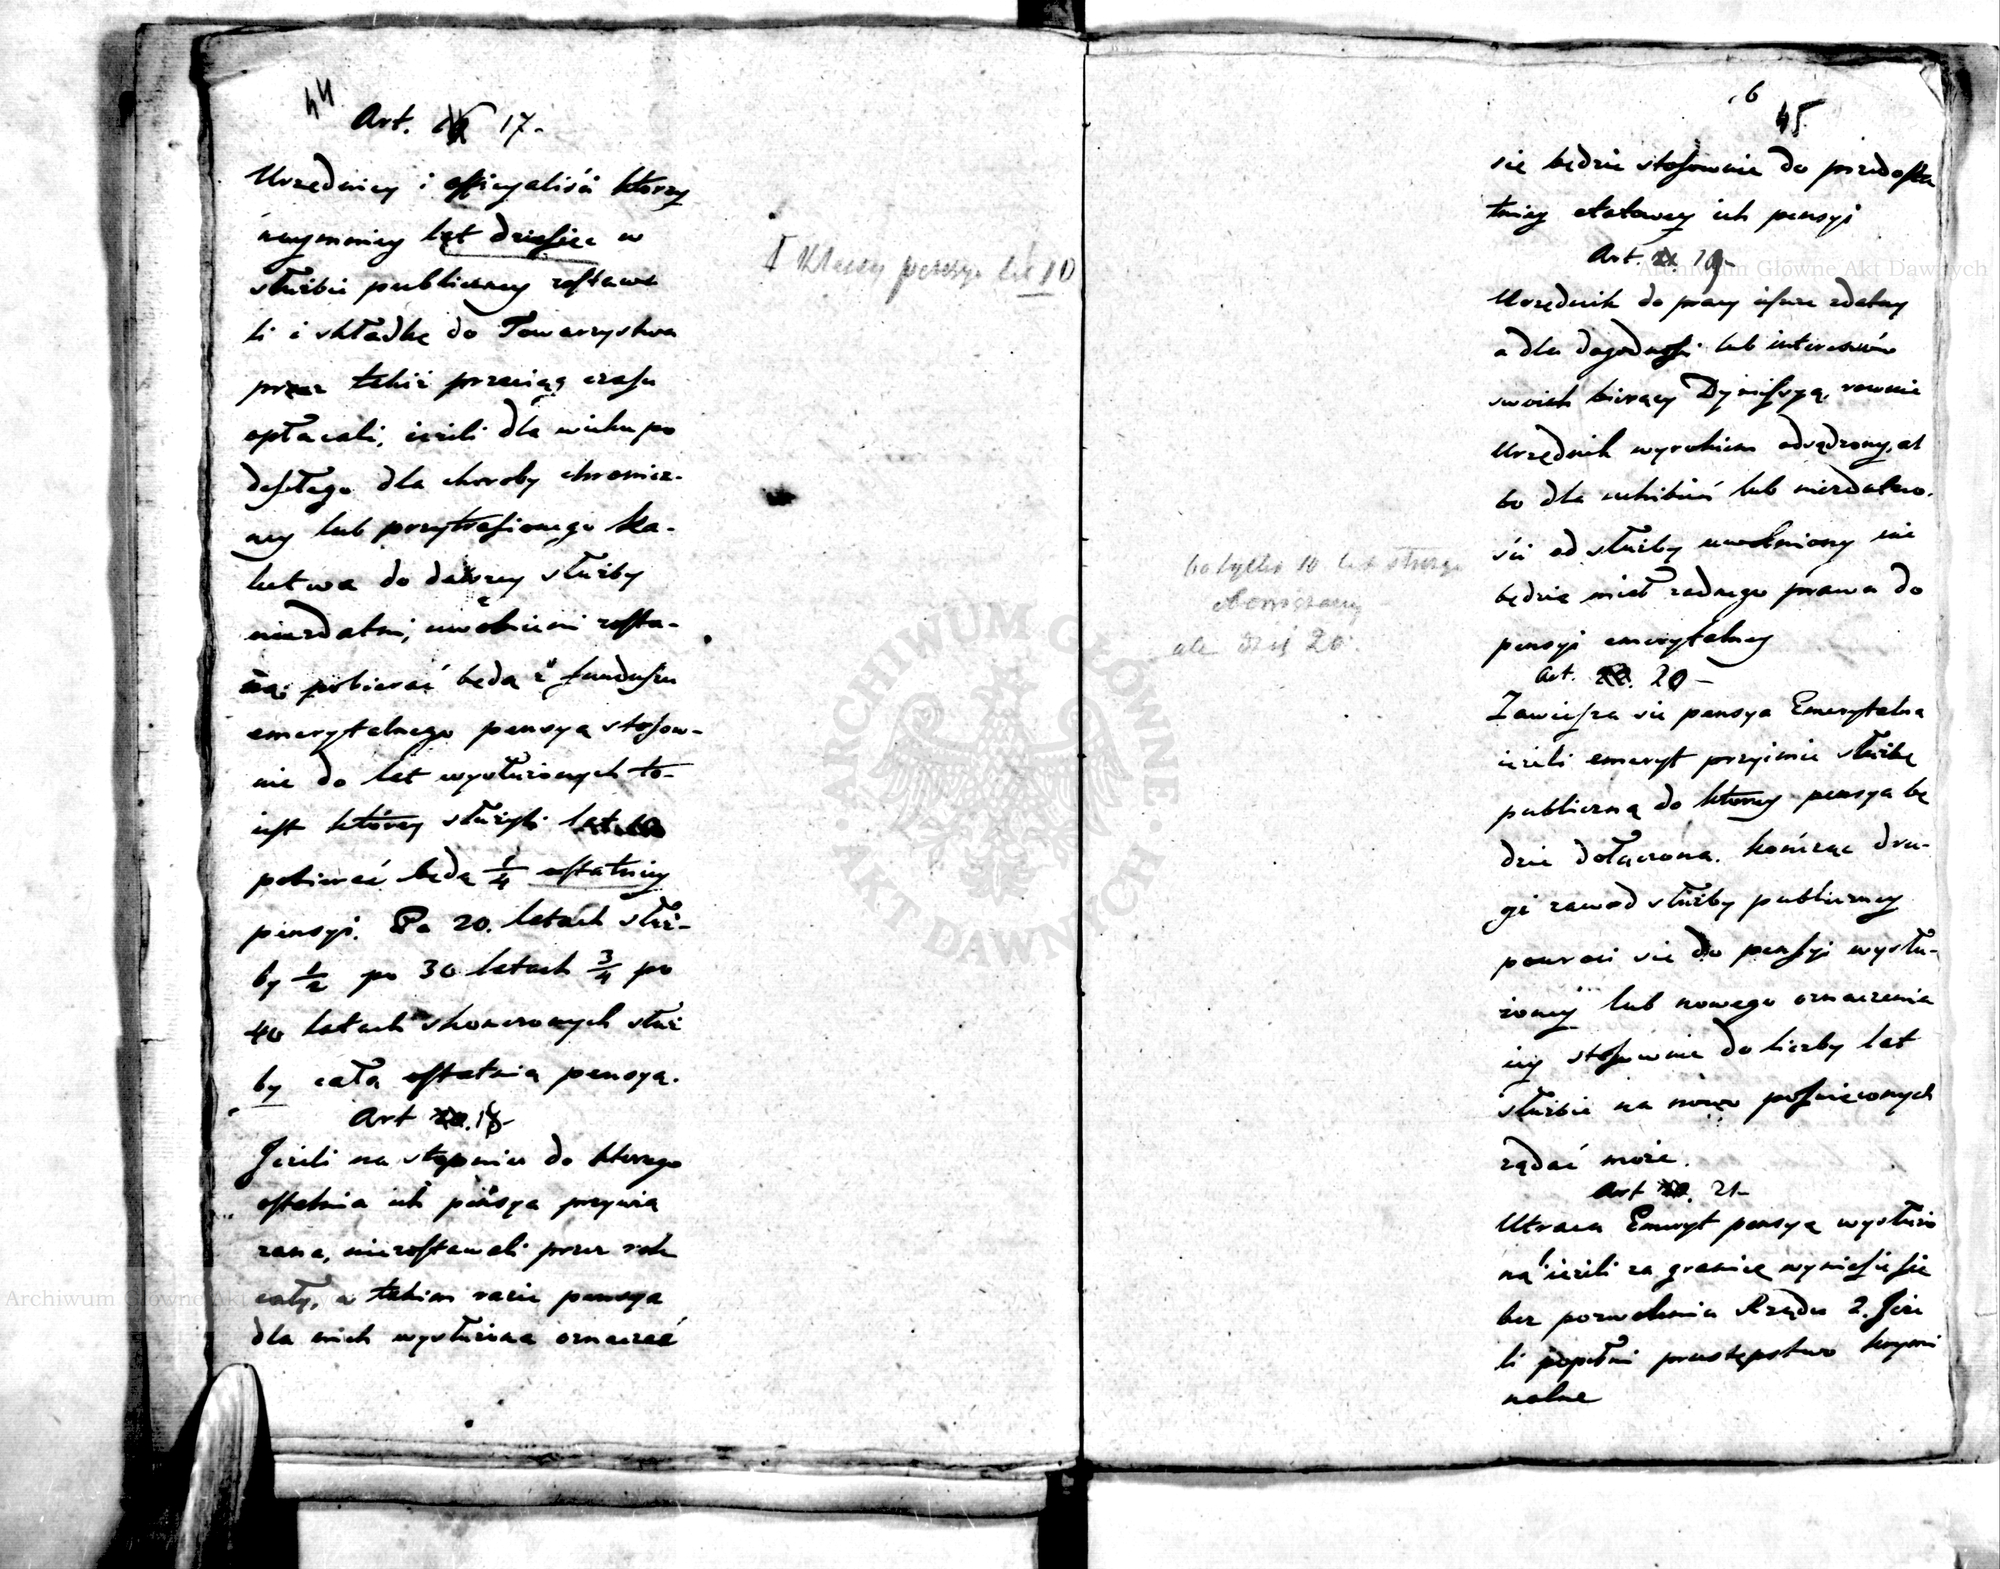 44
Art. 17.
Urzędnicy i officyaliści ktorzy
naymniey lat dziesięc w
służbie publiczney zostawa
li i składkę do Towarzystwa
przez takiż przeciąg czasu
opłacali, ieżeli dla wieku po
deszłego dla choroby chronicz-
ney lub przytrafionego ka-
lectwa do dalszey służby
niezdatni, uwolnieni zosta-
ną; pobierać będą z funduszu
emerytalnego pensyą stosow-
nie do lat wysłużonych to-
iest którzy służyli lat
pobierać będą 1/4 ostatniey
pensyi. Po 20. latach służ-
by 1/2 po 30 latach 3/4 po
40 latach skonczonych służ
by cała ostatnia pensya.
Art 18
Jeżeli na stopniu do ktorego
ostatnia ich pensya przywią
zana, niezostawali przez rok
cały, w takim razie pensya
dla nich wysłużona oznaczać
I Klassy pensya lat 10
6
45
się będzie stosownie do przedosta
tniey etatowey ich pensyi
Art. 19
Urzędnik do pracy iescze zdatny
a dla dogodności lub interessów
swoich biorący Dymissyą, rownie
Urzędnik wyrokiem odsądzony, al
bo dla uchibień lub niezdatno-
ści od służby uwolniony nie
będzie miał żadnego prawa do
pensyi emerytalney
bo tylko 10 lat
ale 20.
Art. 20
Zawiesza się pensya Emerytalna
ieżeli emeryt przyimie służbę
publiczną do ktorey pensya bę
dzie dołączona. Kończąc dru-
gi zawod służby publiczney
powraci się do pensyi wysłu-
żoney lub nowego oznaczenia
iey stosownie do liczby lat
służbie na nowo poświęconych
żądać może.
Art 21
Utraca Emeryt pensyą wysłużo
ną 1 ieżeli za granicę wyniesie się
bez pozwolenia Rządu 2. Jeże
li popełni przestępstwo krymi
nalne
ARCHIWUM GŁÓWNE AKT DAWNYCH
Archiwum Główne Akt Dawnych
Archiwum Główne Akt Dawnych